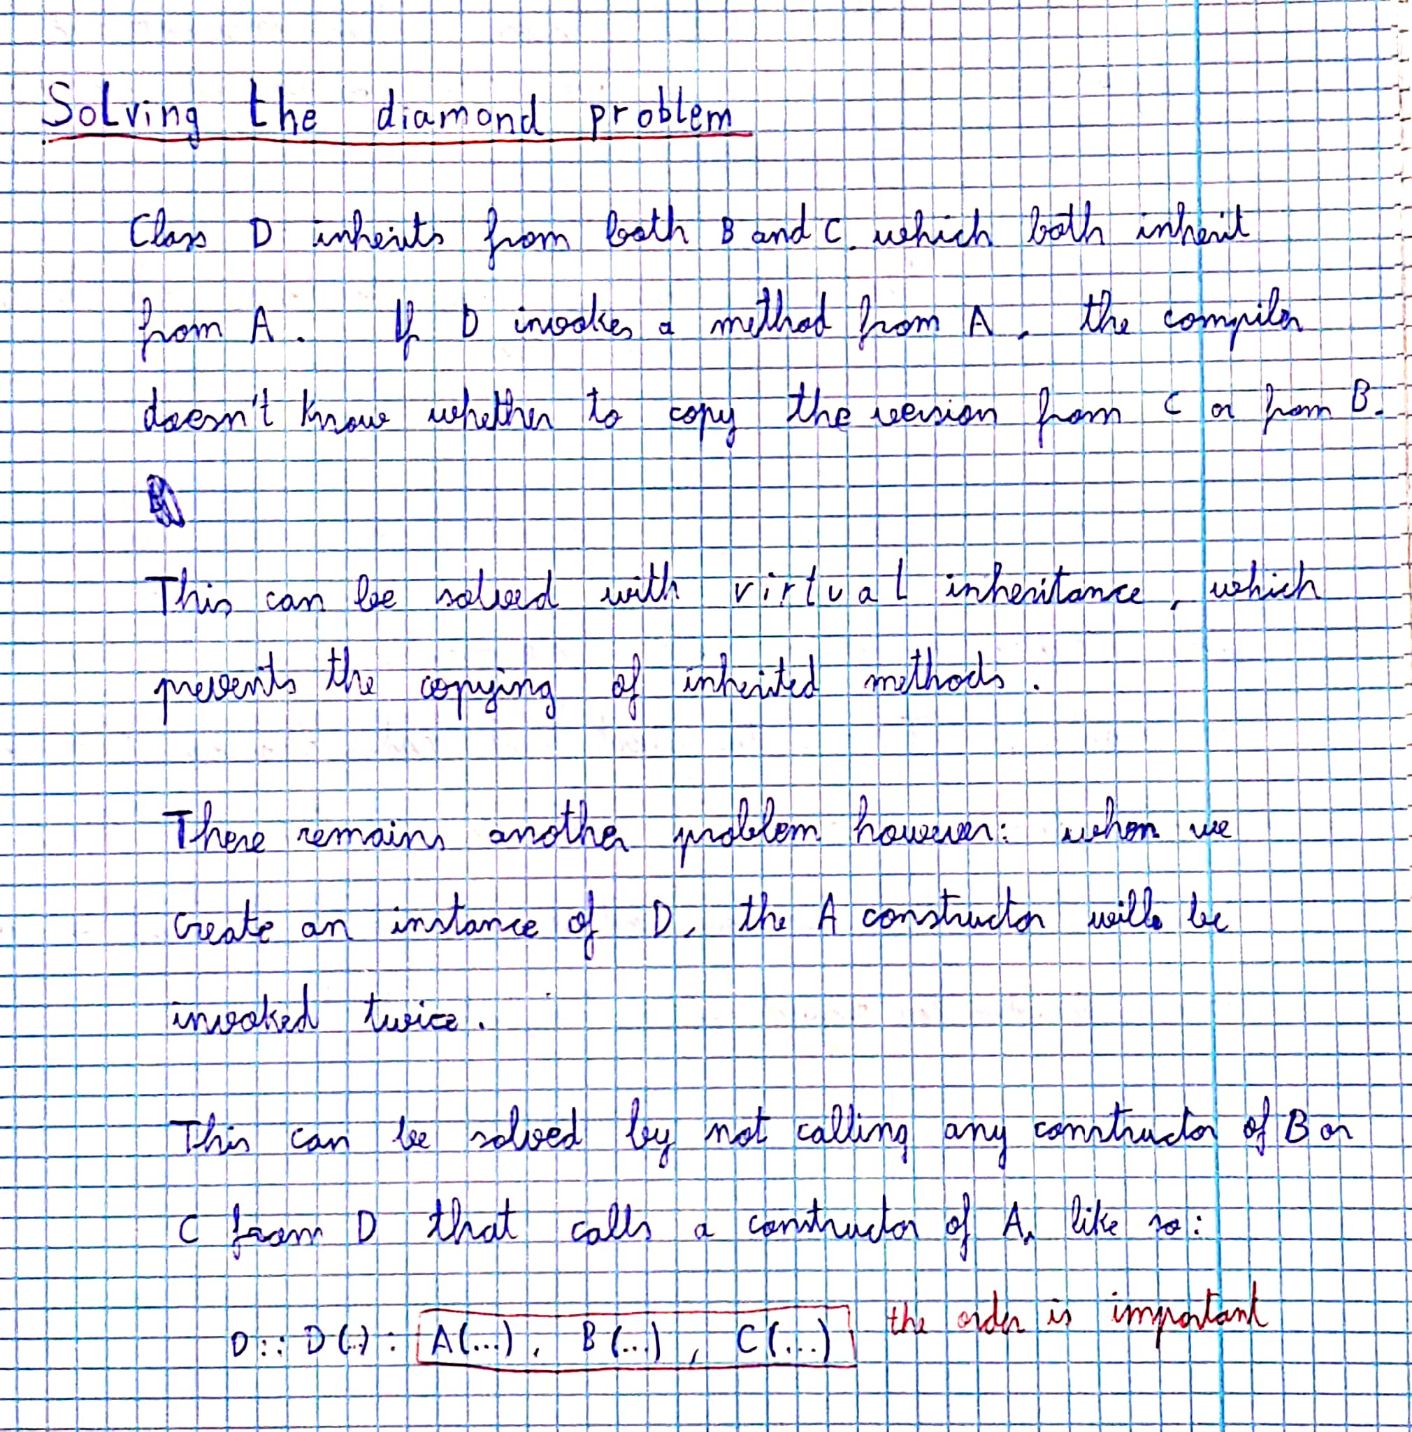 Solving the diamond problem
Class D inherits from both B and C, which both inherit
from A. If D invokes a method from A, the compiler
doesn't know whether to copy the version from C or from B.
This can be solved with virtual inheritance, which
prevents the copying of inherited methods.
There remains another problem however: when we
create an instance of D, the A constructor will be
invoked twice.
This can be solved by not calling any constructor of B or
C from D that calls a constructor of A, like so:
D::D(..): A(...), B(...), C(...) the order is important